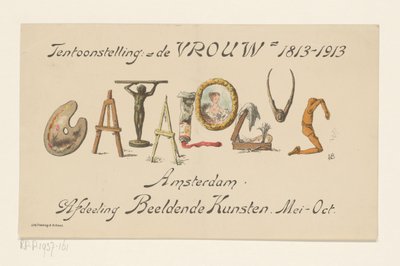 Tentoonstelling: de VROUW 1813-1913
CATALOGUS
Amsterdam.
Afdeeling Beeldende Kunsten. Mei-Oct.
RP-P-1957-161